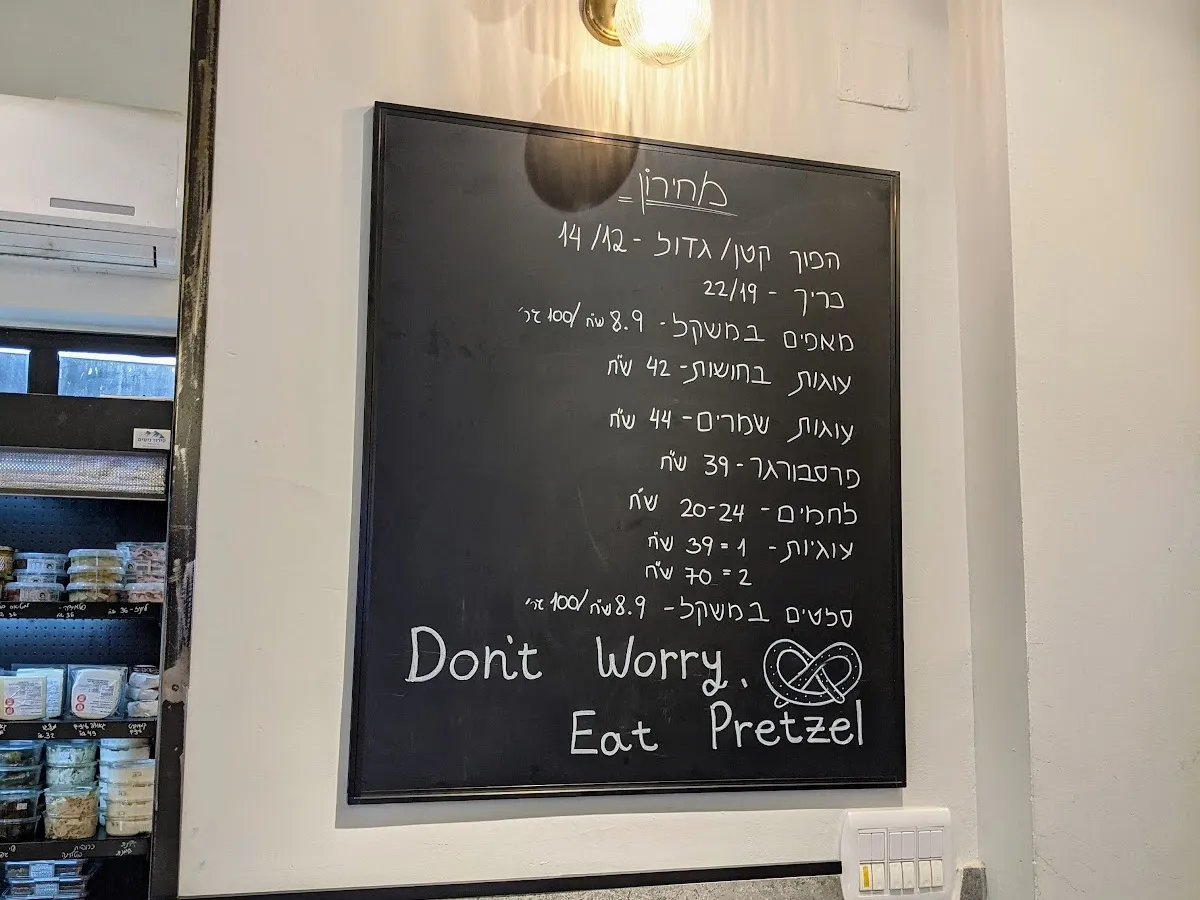 מחירון
הפוך קטן/גדול - 14/12
כריך - 22/19
מאפים במשקל - 8.9 ש"ח /100 גר'
עוגות בחושות - 42 ש"ח
עוגות שמרים - 44 ש"ח
פרסבורגר - 39 ש"ח
לחמים - 20-24 ש"ח
עוגיות - 1 = 39 ש"ח
2 = 70 ש"ח
סלטים במשקל - 8.9 ש"ח /100 גר'
Don't Worry,
Eat Pretzel